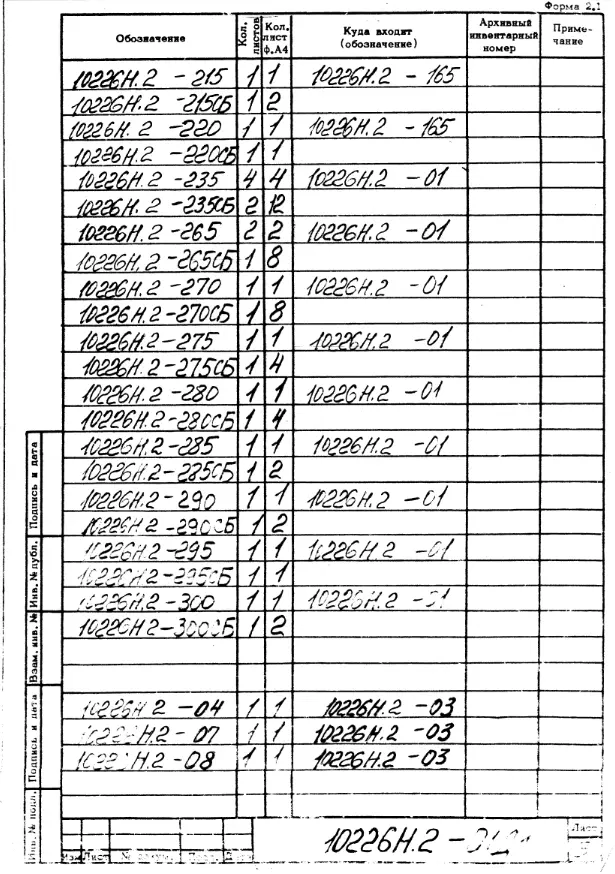 Форма 2.1
Обозначение Кол. листов Кол. лист ф.А4 Куда входит (обозначение) Архивный инвентарный номер Примечание
10226Н.2 - 215 1 1 10226Н.2 - 165
10226Н.2 -215СБ 1 2
10226Н.2 -220 1 1 10226Н.2 - 165
10226Н.2 -220СБ 1 1
10226Н.2 -235 4 4 10226Н.2 -01
10226Н.2 -235СБ 2 12
10226Н.2 -265 2 2 10226Н.2 -01
10226Н.2 -265СБ 1 8
10226Н.2 -270 1 1 10226Н.2 -01
10226Н.2-270СБ 1 8
10226Н.2-275 1 1 10226Н.2 -01
10226Н.2-275СБ 1 4
10226Н.2 -280 1 1 10226Н.2 -01
10226Н.2-280СБ 1 4
10226Н.2-285 1 1 10226Н.2 -01
10226Н.2-285СБ 1 2
10226Н.2-290 1 1 10226Н.2 -01
10226Н.2 -290СБ 1 2
10226Н.2-295 1 1 10226Н.2 -01
10226Н.2-295СБ 1 1
10226Н.2-300 1 1 10226Н.2 -01
10226Н.2-300СБ 1 2
10226Н.2 -04 1 1 10226Н.2 -03
Н.2- 07 1 1 10226Н.2 -03
Н.2-08 1 1 10226Н.2 -03
Подпись и дата
Инв. № дубл.
Взам. инв. №
Подпись и дата
Инв. № подл.
10226Н.2-
Лист
Изм Лист